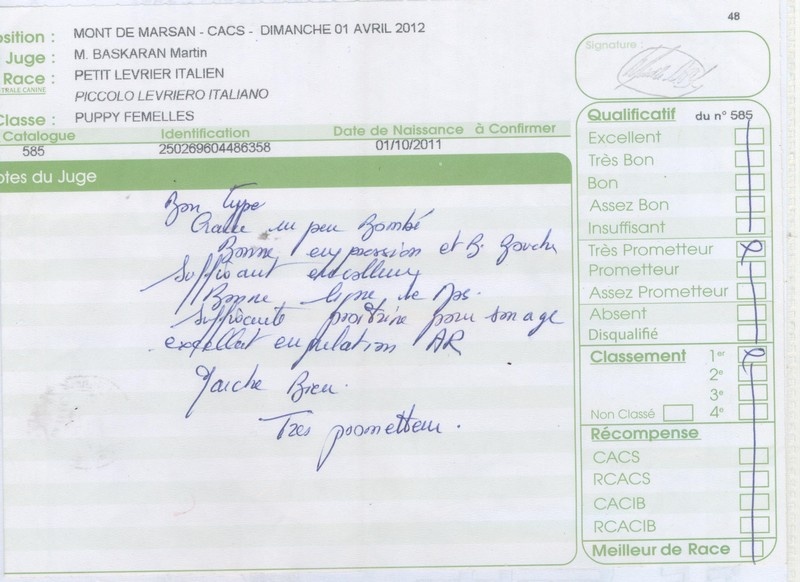 48
osition : MONT DE MARSAN - CACS - DIMANCHE 01 AVRIL 2012
Juge : M. BASKARAN Martin
Race : PETIT LEVRIER ITALIEN
TRALE CANINE
PICCOLO LEVRIERO ITALIANO
Classe : PUPPY FEMELLES
Catalogue Identification Date de Naissance à Confirmer
585 250269604486358 01/10/2011
otes du Juge
Bon type
Crane un peu Bombé
Bonne expression et B. Bouche
Suffisant encolure
Bonne ligne de Dos.
Suffisante poitrine pour son age
excellent angulation AR
Marche Bien.
Tres prometteur.
Signature :
Qualificatif du n° 585
Excellent
Très Bon
Bon
Assez Bon
Insuffisant
Très Prometteur
Prometteur
Assez Prometteur
Absent
Disqualifié
Classement 1er
2e
3e
Non Classé 4e
Récompense
CACS
RCACS
CACIB
RCACIB
Meilleur de Race